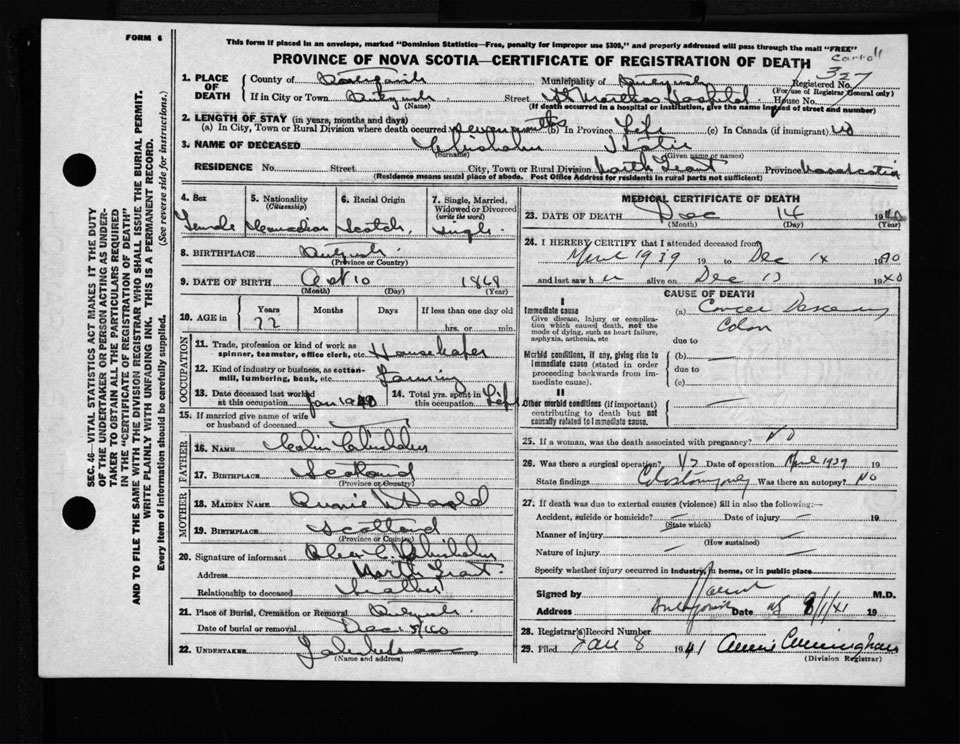 FORM 6
This form if placed in an envelope, marked "Dominion Statistics—Free, penalty for improper use $300," and properly addressed will pass through the mail "FREE"
PROVINCE OF NOVA SCOTIA—CERTIFICATE OF REGISTRATION OF DEATH
327
1. PLACE OF DEATH County of Antigonish Municipality of Antigonish Registered No.
(For use of Registrar General only)
If in City or Town Antigonish Street St Marthas Hospital House No.
(Name) (If death occurred in a hospital or institution, give the name instead of street and number)
2. LENGTH OF STAY (in years, months and days)
(a) In City, Town or Rural Division where death occurred seven months (b) In Province Life (c) In Canada (if immigrant)
3. NAME OF DECEASED Chisholm
(Surname) (Given name or names)
RESIDENCE No. Street City, Town or Rural Division North Grant Province Nova Scotia
(Residence means usual place of abode. Post Office Address for residents in rural parts not sufficient)
4. Sex Female
5. Nationality (Citizenship) Canadian
6. Racial Origin Scotch
7. Single, Married, Widowed or Divorced (write the word) Single
8. BIRTHPLACE Antigonish
(Province or Country)
9. DATE OF BIRTH 10 1868
(Month) (Day) (Year)
10. AGE in Years Months Days If less than one day old
72 hrs. or min.
OCCUPATION
11. Trade, profession or kind of work as spinner, teamster, office clerk, etc. Housekeeper
12. Kind of industry or business, as cotton-mill, lumbering, bank, etc. Farming
13. Date deceased last worked at this occupation Jan 1940 14. Total yrs. spent in this occupation Life
15. If married give name of wife or husband of deceased
FATHER
16. NAME Colin Chisholm
17. BIRTHPLACE Scotland
(Province or Country)
MOTHER
18. MAIDEN NAME
19. BIRTHPLACE Scotland
(Province or Country)
20. Signature of informant Chisholm
Address North Grant
Relationship to deceased Brother
21. Place of Burial, Cremation or Removal Antigonish
Date of burial or removal Dec
22. UNDERTAKER
(Name and address)
MEDICAL CERTIFICATE OF DEATH
23. DATE OF DEATH Dec 14 1940
(Month) (Day) (Year)
24. I HEREBY CERTIFY that I attended deceased from
1939 19 to Dec 14 1940
and last saw h alive on Dec 13 1940
CAUSE OF DEATH
I
Immediate cause (a) Cancer Descending Colon
Give disease, injury or complication which caused death, not the mode of dying, such as heart failure, asphyxia, asthenia, etc
due to
Morbid conditions, if any, giving rise to immediate cause (stated in order proceeding backwards from immediate cause). (b) —
due to
(c)
II
Other morbid conditions (if important) contributing to death but not causally related to immediate cause.
25. If a woman, was the death associated with pregnancy? NO
26. Was there a surgical operation? Date of operation 1939 19
State findings Colostomy Was there an autopsy? NO
27. If death was due to external causes (violence) fill in also the following:—
Accident, suicide or homicide? — Date of injury — 19
(State which)
Manner of injury —
(How sustained)
Nature of injury —
Specify whether injury occurred in industry, in home, or in public place
Signed by M.D.
Address Antigonish Date 8/1/41 19
28. Registrar's Record Number
29. Filed Jan 8 1941 Annie Cunningham
(Division Registrar)
SEC. 46—VITAL STATISTICS ACT MAKES IT THE DUTY
OF THE UNDERTAKER OR PERSON ACTING AS UNDER-
TAKER TO OBTAIN ALL THE PARTICULARS REQUIRED
IN THE "CERTIFICATE OF REGISTRATION OF DEATH"
AND TO FILE THE SAME WITH THE DIVISION REGISTRAR WHO SHALL ISSUE THE BURIAL PERMIT.
WRITE PLAINLY WITH UNFADING INK. THIS IS A PERMANENT RECORD.
Every item of information should be carefully supplied. (See reverse side for instructions.)